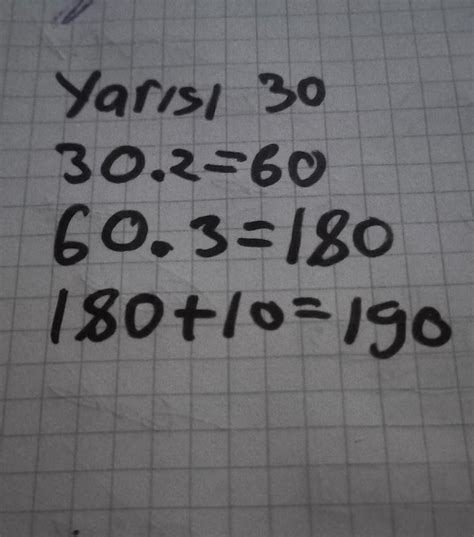 Yarısı 30
30.2=60
60.3=180
180+10=190